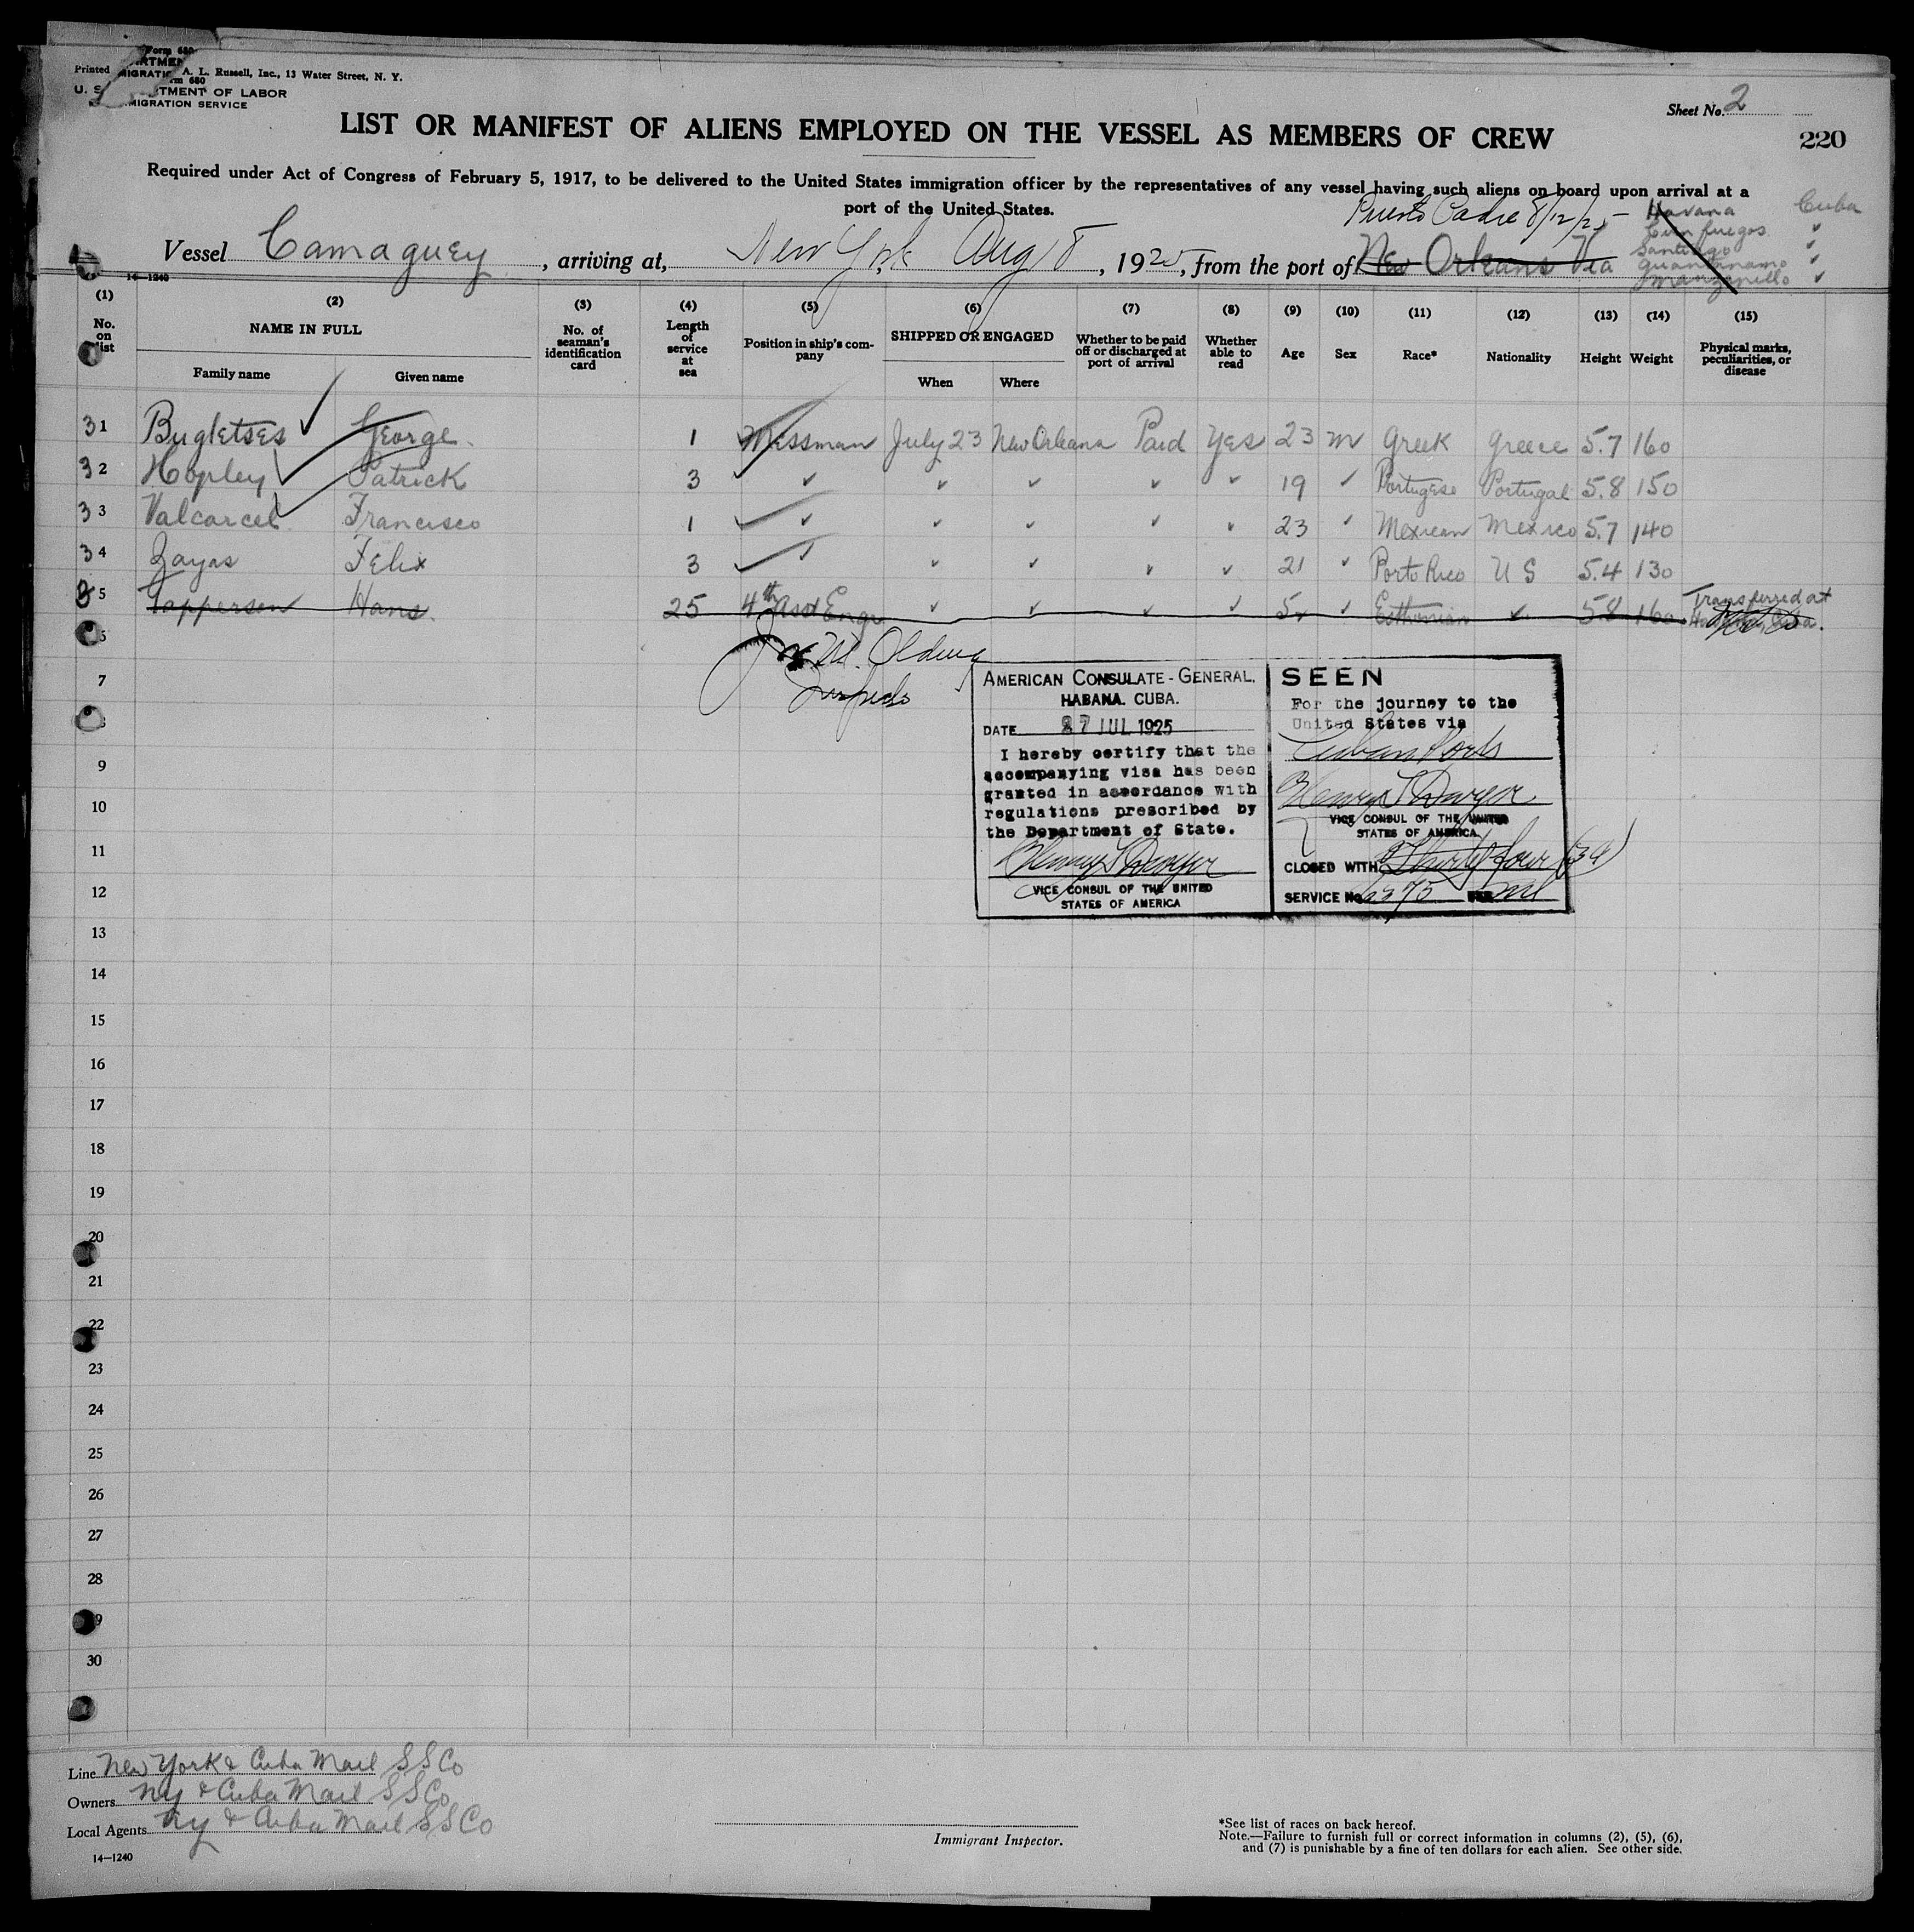 Form 680
Printed A. L. Russell, Inc., 13 Water Street, N. Y.
U. S. DEPARTMENT OF LABOR
IMMIGRATION SERVICE
Sheet No. 2
220
LIST OR MANIFEST OF ALIENS EMPLOYED ON THE VESSEL AS MEMBERS OF CREW
Required under Act of Congress of February 5, 1917, to be delivered to the United States immigration officer by the representatives of any vessel having such aliens on board upon arrival at a
port of the United States.
Puerto Padre 8/2/25 - Havana Cuba
Cienfuegos ✓
Santiago ✓
Guantanamo ✓
Manzanillo ✓
Vessel Camaguey, arriving at, New York Aug 8, 1925, from the port of New Orleans Via
14—1240
(1) (2) (3) (4) (5) (6) (7) (8) (9) (10) (11) (12) (13) (14) (15)
No. on list
NAME IN FULL
Family name Given name
No. of seaman's identification card
Length of service at sea
Position in ship's company
SHIPPED OR ENGAGED
When Where
Whether to be paid off or discharged at port of arrival
Whether able to read
Age
Sex
Race*
Nationality
Height
Weight
Physical marks, peculiarities, or disease
31 Bugletses George. 1 Messman July 23 New Orleans Paid Yes 23 m Greek Greece 5.7 160
32 Hopley Patrick 3 ✓ ✓ ✓ ✓ ✓ 19 ✓ Portugese Portugal 5.8 150
33 Valcarcel Francisco 1 ✓ ✓ ✓ ✓ ✓ 23 ✓ Mexican Mexico 5.7 140
34 Zayas Felix 3 ✓ ✓ ✓ ✓ ✓ 21 ✓ Porto Rico U S 5.4 130
35 Tappersen Hans. 25 4th Asst Engr ✓ ✓ ✓ ✓ ✓ Esthonian ✓ 5.8 160 Transferred at
6
7
8
9
10
11
12
13
14
15
16
17
18
19
20
21
22
23
24
25
26
27
28
29
30
AMERICAN CONSULATE-GENERAL,
HABANA. CUBA.
DATE 27 JUL 1925
I hereby certify that the
accompanying visa has been
granted in accordance with
regulations prescribed by
the Department of State.
Henry T Dwyer
VICE CONSUL OF THE UNITED
STATES OF AMERICA
SEEN
For the journey to the
United States via
Cuban Ports
Henry T Dwyer
VICE CONSUL OF THE UNITED
STATES OF AMERICA
CLOSED WITH Thirty four (34)
SERVICE No. 6575
Line New York & Cuba Mail S S Co
Owners NY & Cuba Mail S S Co
Local Agents NY & Cuba Mail S S Co
14—1240
Immigrant Inspector.
*See list of races on back hereof.
Note.—Failure to furnish full or correct information in columns (2), (5), (6),
and (7) is punishable by a fine of ten dollars for each alien. See other side.